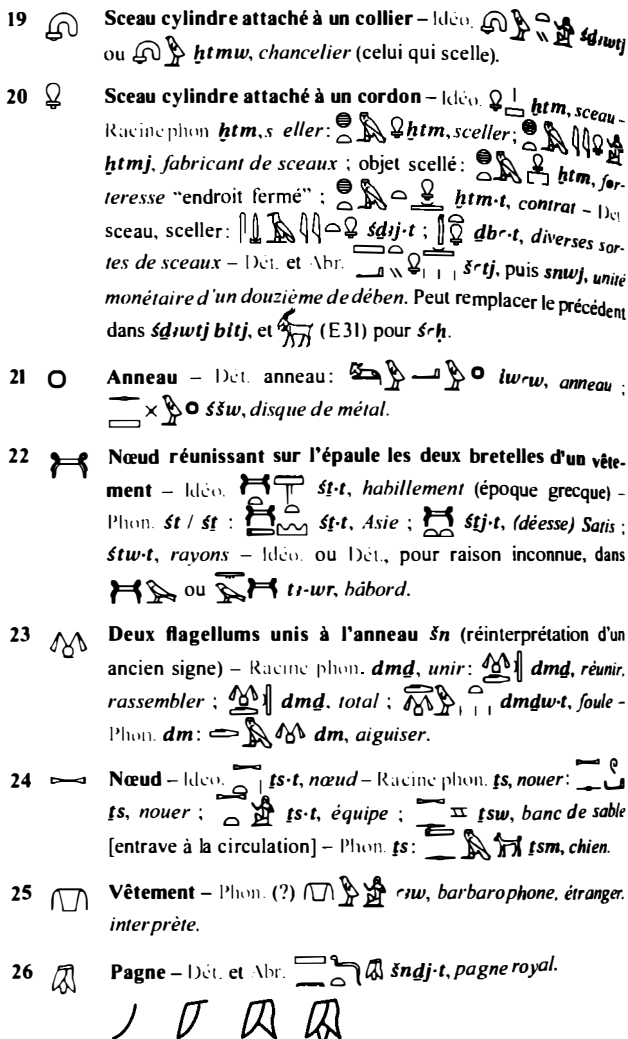 19 Sceau cylindre attaché à un collier – Idéo. śḏꜣwtj
ou ḫtmw, chancelier (celui qui scelle).
20 Sceau cylindre attaché à un cordon – Idéo. ḫtm, sceau –
Racine phon ḫtm, s eller: ḫtm, sceller;
ḫtmj, fabricant de sceaux ; objet scellé: ḫtm, for-
teresse “endroit fermé” ; ḫtm·t, contrat – Dét.
sceau, sceller: śḏꜣj·t ; ḏbꜥ·t, diverses sor-
tes de sceaux – Dét. et Abr. šꜥtj, puis snwj, unité
monétaire d'un douzième de dében. Peut remplacer le précédent
dans śḏꜣwtj bitj, et (E31) pour śꜥḥ.
21 Anneau – Dét. anneau: iwꜥw, anneau ;
śšw, disque de métal.
22 Nœud réunissant sur l'épaule les deux bretelles d'un vête-
ment – Idéo. śṯ·t, habillement (époque grecque) –
Phon. śt / śṯ : śṯ·t, Asie ; śṯj·t, (déesse) Satis ;
śtw·t, rayons – Idéo. ou Dét., pour raison inconnue, dans
ou tꜣ-wr, bâbord.
23 Deux flagellums unis à l'anneau šn (réinterprétation d'un
ancien signe) – Racine phon. dmḏ, unir: dmḏ, réunir,
rassembler ; dmḏ, total ; dmḏw·t, foule –
Phon. dm: dm, aiguiser.
24 Nœud – Idéo. ṯs·t, nœud – Racine phon. ṯs, nouer:
ṯs, nouer ; ṯs·t, équipe ; ṯsw, banc de sable
[entrave à la circulation] – Phon. ṯs: ṯsm, chien.
25 Vêtement – Phon. (?) ꜥꜣw, barbarophone, étranger,
interprète.
26 Pagne – Dét. et Abr. šnḏj·t, pagne royal.